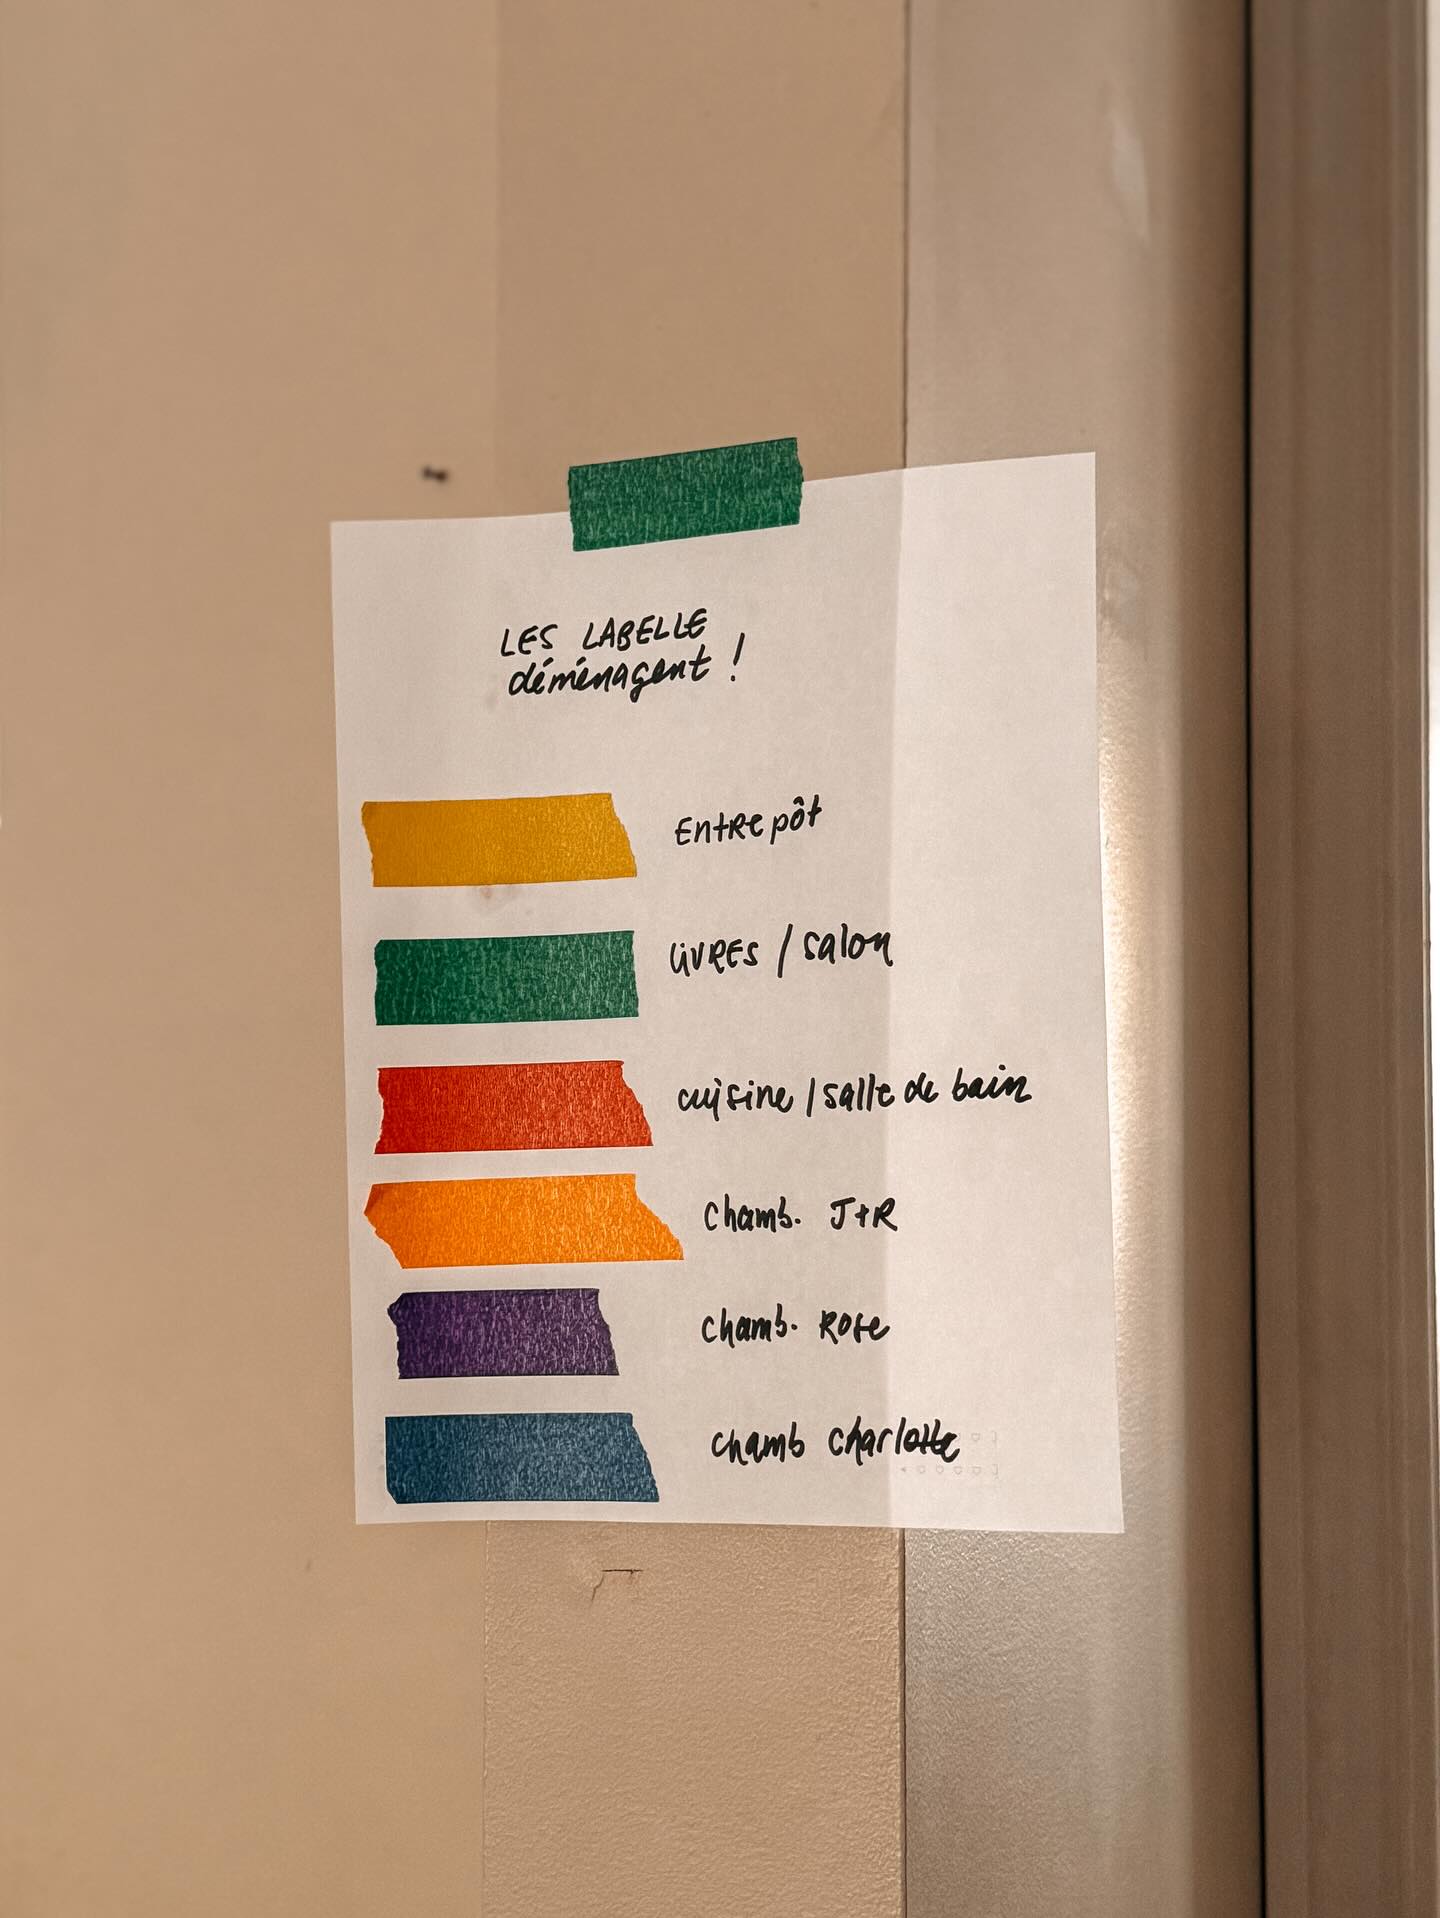 LES LABELLE
déménagent !
Entrepôt
LIVRES / salon
cuisine / salle de bain
Chamb. J+R
Chamb. Rose
Chamb Charlotte